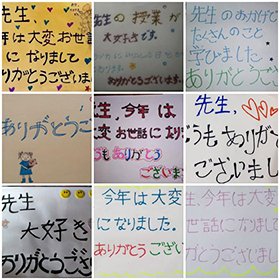 先生、
年は大変お世話
になりまして
りがとうござい
先生の授業が
大好きです。
ありがとうございます。
先生のおかげで
たくさんのこと
学びました
ありがとう
ありがとうご
先生、今年は
大変お世話になりま
ありがとう
ございま
先生、
うもありがと
ございまし
先生
大好き
ありがとうござい
今年は大変
になりました。
ありがとうござい
生、今年は大変
世話になりま
りがとうございま